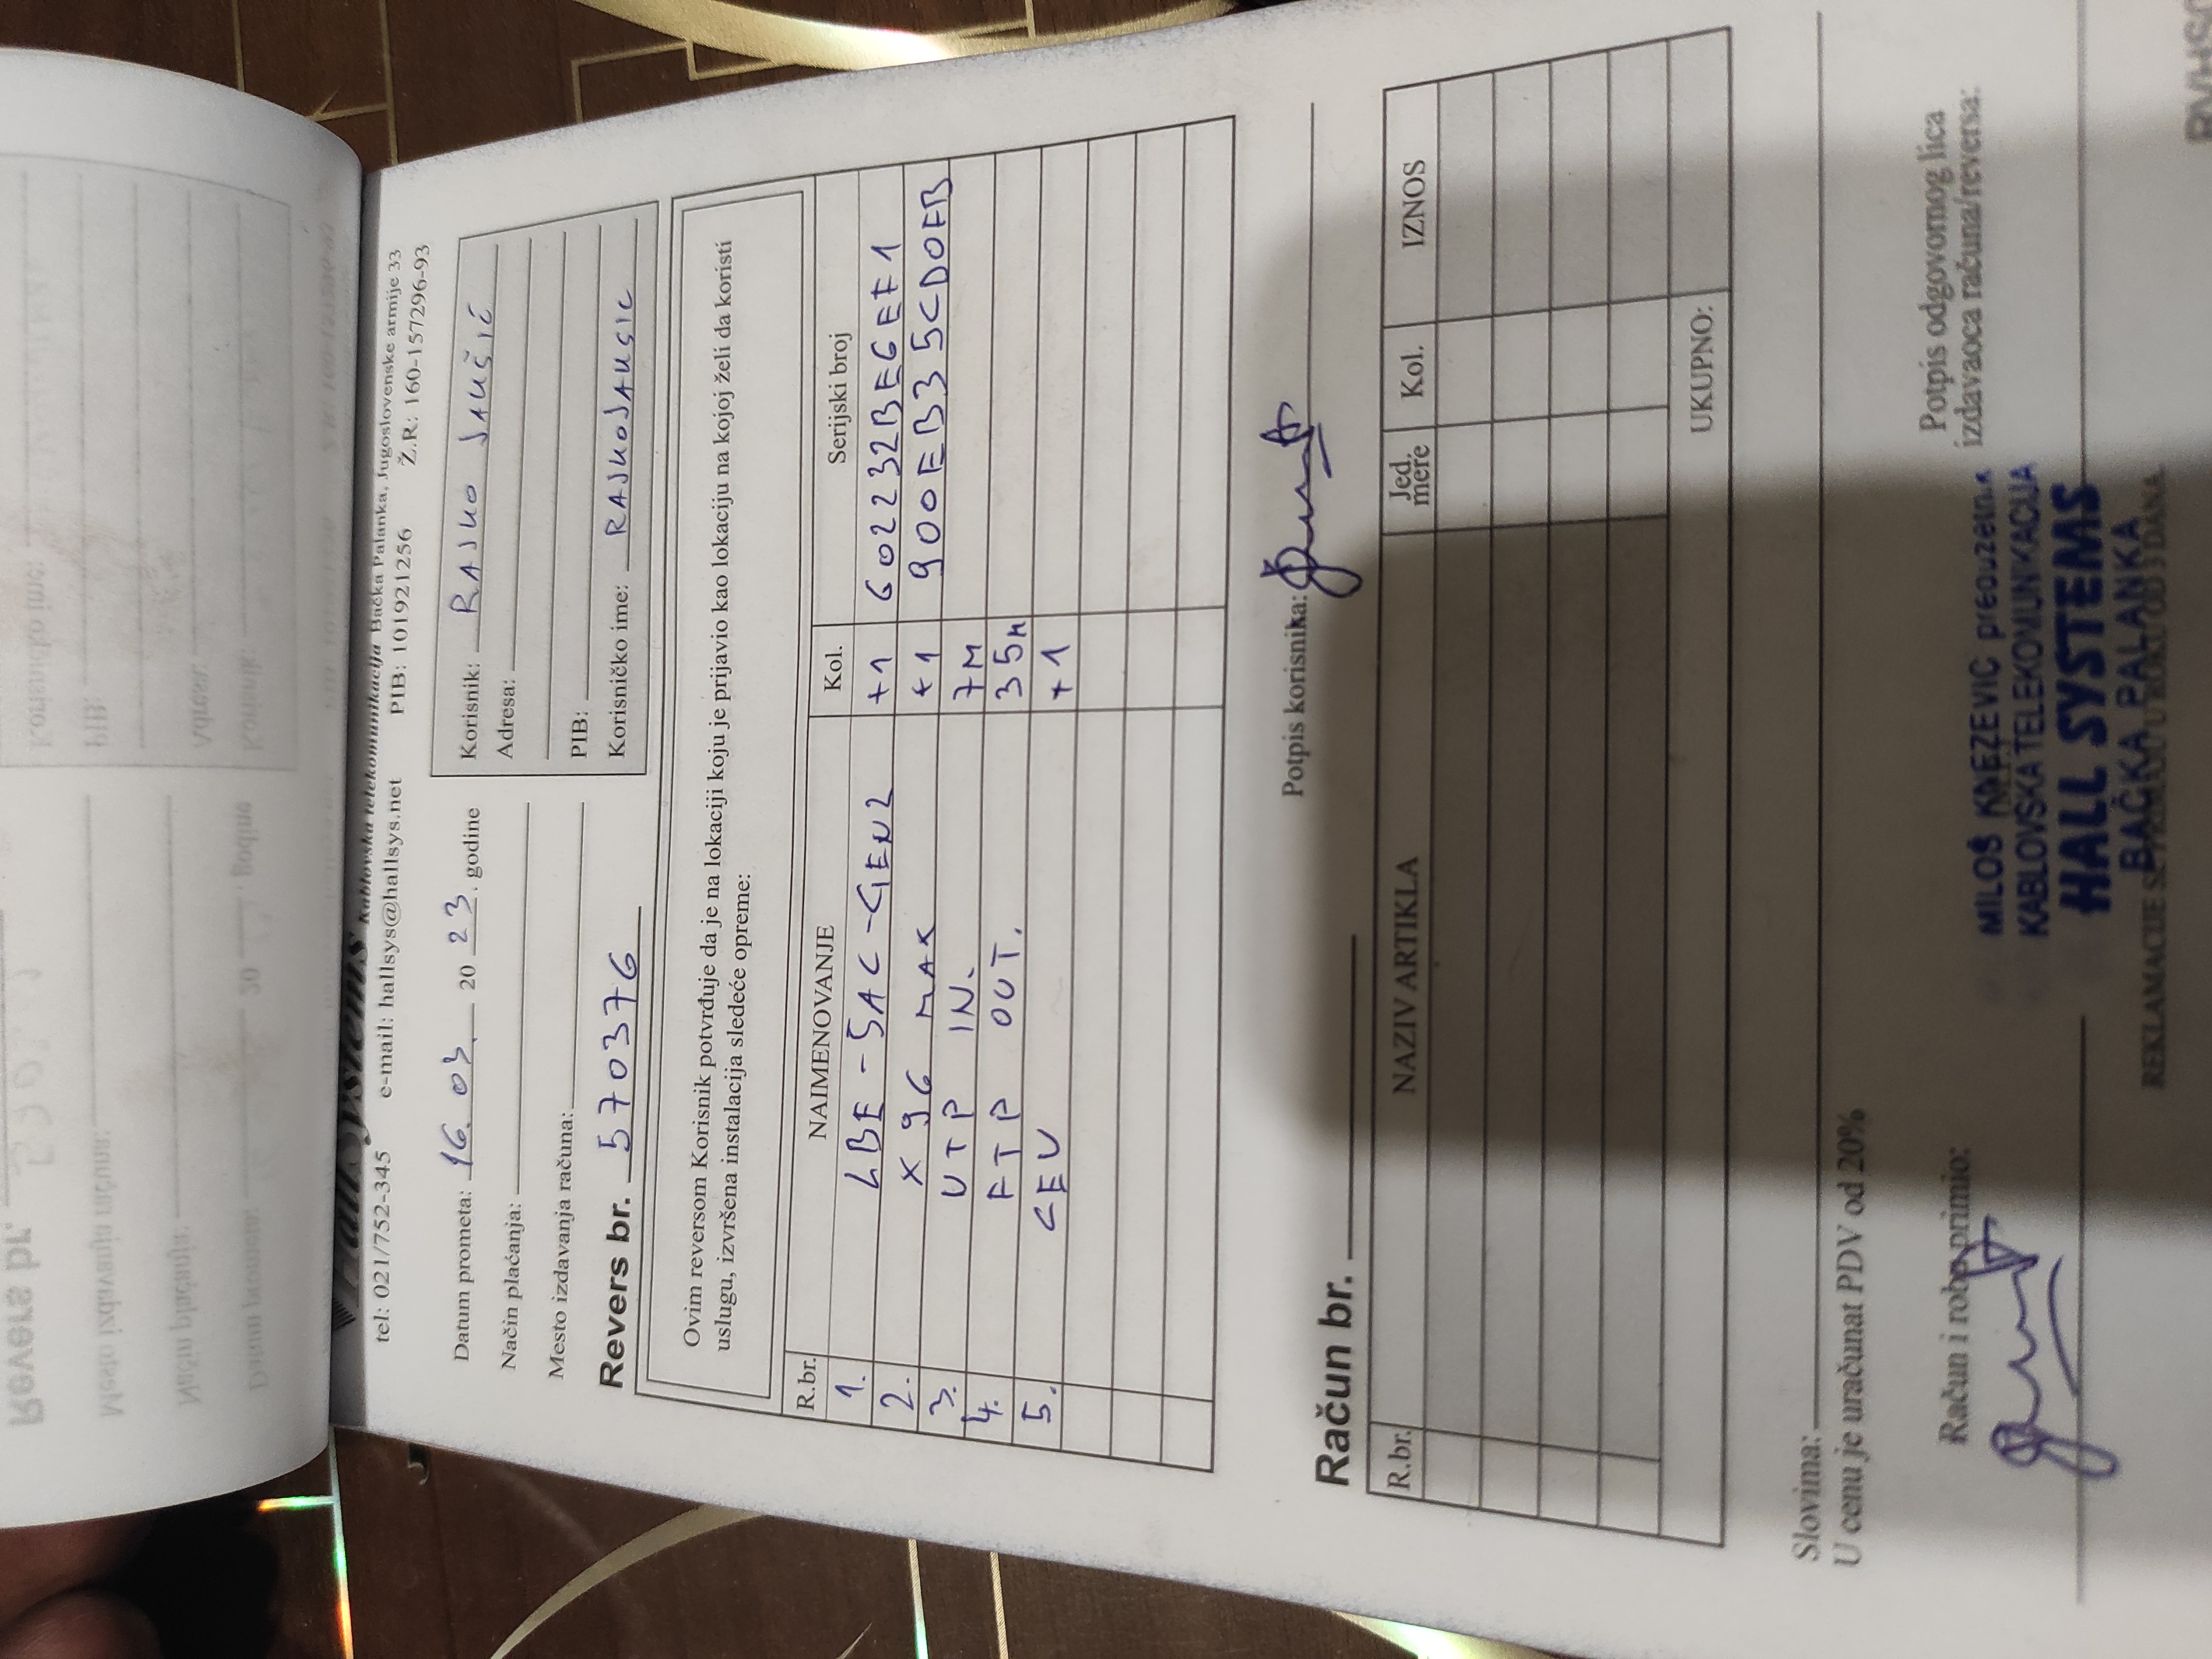 HallSystems Kablovska telekomunikacija Bačka Palanka, Jugoslovenske armije 33
tel: 021/752-345 e-mail: hallsys@hallsys.net PIB: 101921256 Ž.R.: 160-157296-93
Datum prometa: 16. 03. 20 23. godine
Način plaćanja:
Mesto izdavanja računa:
Revers br. 570376
Korisnik: RAJKO JAUŠIĆ
Adresa:
PIB:
Korisničko ime: RAJKOJAUSIC
Ovim reversom Korisnik potvrđuje da je na lokaciji koju je prijavio kao lokaciju na kojoj želi da koristi
uslugu, izvršena instalacija sledeće opreme:
R.br. NAIMENOVANJE Kol. Serijski broj
1. LBE-5AC-GEN2 +1 602232BE6EF1
2. X96 MAX +1 900EB35CD0FB
3. UTP IN. 7M
4. FTP OUT. 35M
5. CEV +1
Potpis korisnika:
Račun br.
R.br. NAZIV ARTIKLA Jed. mere Kol. IZNOS
UKUPNO:
Slovima:
U cenu je uračunat PDV od 20%
Račun i robu primio:
Potpis odgovornog lica
izdavaoca računa/reversa:
MILOŠ KNEZEVIC preduzetnik
KABLOVSKA TELEKOMUNIKACIJA
HALL SYSTEMS
BAČKA PALANKA